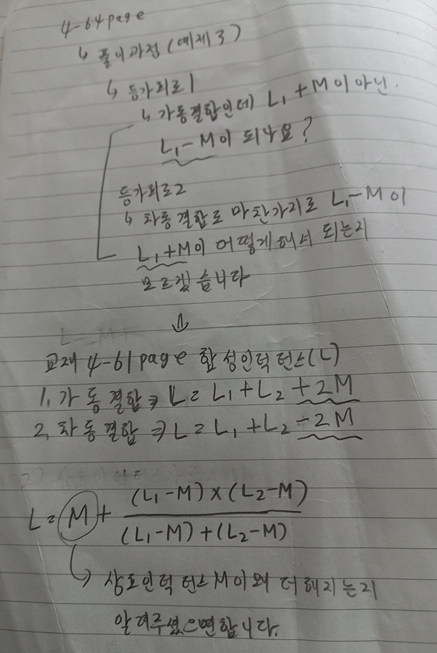 4-64page
↳ 풀이과정 (예제 3)
↳ 등가회로1
↳ 가동결합인데 L₁+M이 아닌
L₁-M이 되나요?
등가회로2
↳ 차동결합도 마찬가지로 L₁-M이
L₁+M이 어떻게해서 되는지
모르겠습니다
⇓
교재 4-61page 합성인덕턴스(L)
1. 가동결합 ⇒ L = L₁+L₂+2M
2. 차동결합 ⇒ L = L₁+L₂-2M
L = M + (L₁-M)×(L₂-M) / (L₁-M)+(L₂-M)
↳ 상호인덕턴스 M이 왜 더해지는지
알려주셨으면합니다.